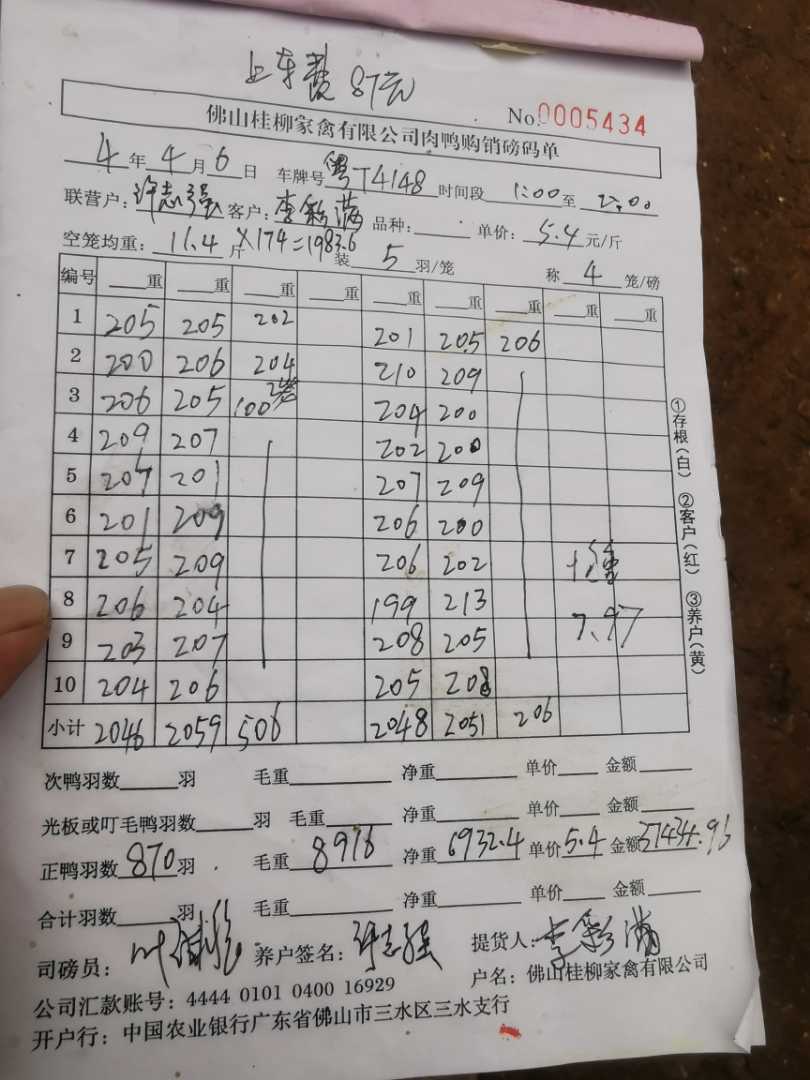 上车费 87元
佛山桂柳家禽有限公司肉鸭购销磅码单 No.0005434
4年4月6日 车牌号粤T4148 时间段1:00至2:00
联营户:许志强 客户:李彩满 品种: 单价:5.4元/斤
空笼均重:11.4斤×174=1983.6 装5羽/笼 称4笼/磅
编号 重 重 重 重 重 重 重 重 重
1 205 205 202 201 205 206
2 200 206 204 210 209
3 206 205 100 2笼 204 200
4 209 207 202 200
5 207 201 207 209
6 201 209 206 200
7 205 209 206 202
8 206 204 199 213 7.97
9 203 207 208 205
10 204 206 205 208
小计 2046 2059 506 2048 2051 206
次鸭羽数 羽 毛重 净重 单价 金额
光板或叮毛鸭羽数 羽 毛重 净重 单价 金额
正鸭羽数870羽 毛重8916 净重6932.4 单价5.4 金额37434.96
合计羽数 羽 毛重 净重 单价 金额
司磅员: 养户签名:许志强 提货人:李彩满
公司汇款账号:4444 0101 0400 16929 户名:佛山桂柳家禽有限公司
开户行:中国农业银行广东省佛山市三水区三水支行
①存根(白) ②客户(红) ③养户(黄)